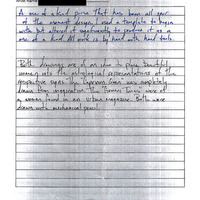 A one of a kind purse that has been all year
of the moment design, I used a template to begin
with but altered it significantly to produce it as a
one of a kind. All work is by hand with hand tools.
Both drawings are of an idea to place beautiful
women into the astrological representations of the
respective signs. The Capricorn Goat was completely
drawn from imagination. The "Gemini Twins" were of
a woman found in an urban magazine. Both were
drawn with mechanical pencil.